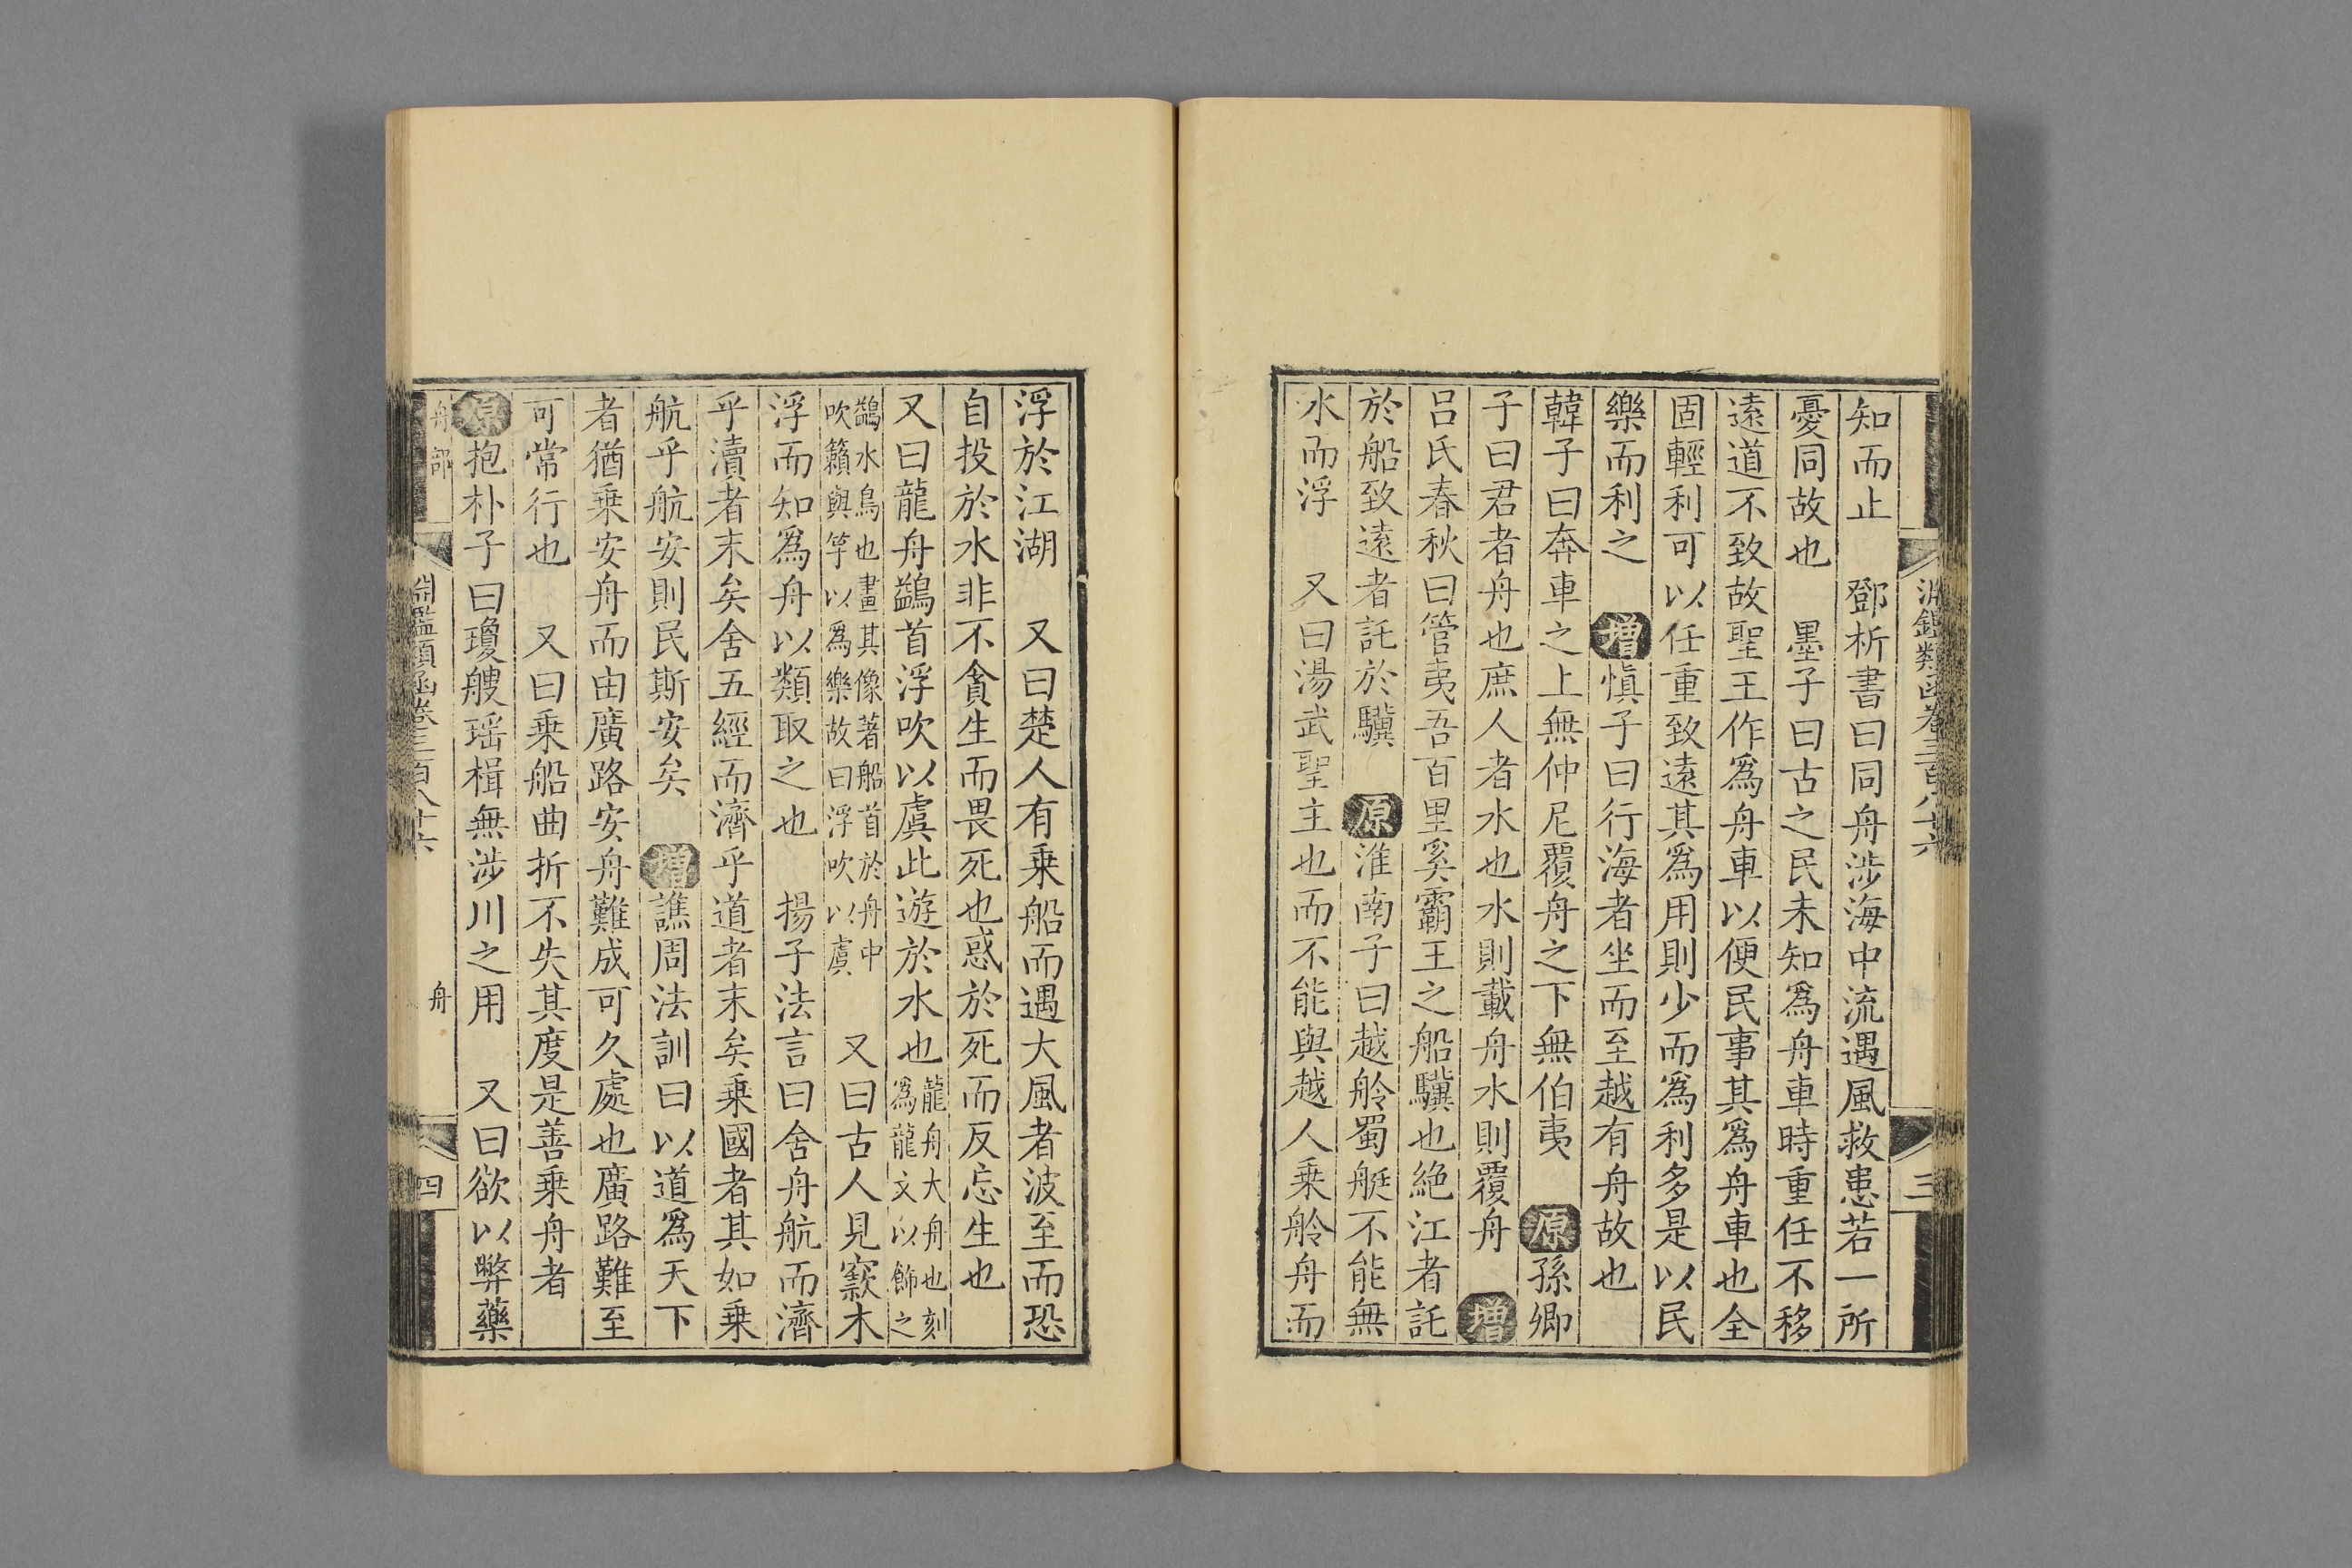 淵鑑類函卷三百八十六
三
知而止　鄧析書曰同舟涉海中流遇風救患若一所
憂同故也　墨子曰古之民未知爲舟車時重任不移
遠道不致故聖王作爲舟車以便民事其爲舟車也全
固輕利可以任重致遠其爲用則少而爲利多是以民
樂而利之　增愼子曰行海者坐而至越有舟故也
韓子曰奔車之上無仲尼覆舟之下無伯夷　原孫卿
子曰君者舟也庶人者水也水則載舟水則覆舟　增
呂氏春秋曰管夷吾百里奚霸王之船驥也絶江者託
於船致遠者託於驥　原淮南子曰越舲蜀艇不能無
水而浮　又曰湯武聖主也而不能與越人乘舲舟而
浮於江湖　又曰楚人有乘船而遇大風者波至而恐
自投於水非不貪生而畏死也惑於死而反忘生也
又曰龍舟鷁首浮吹以虞此遊於水也龍舟大舟也刻爲龍文以飾之
鷁水鳥也畫其像著船首於舟中吹籟與竽以爲樂故曰浮吹以虞　又曰古人見窾木
浮而知爲舟以類取之也　揚子法言曰舍舟航而濟
乎瀆者末矣舍五經而濟乎道者末矣乘國者其如乘
航乎航安則民斯安矣　增譙周法訓曰以道爲天下
者猶乘安舟而由廣路安舟難成可久處也廣路難至
可常行也　又曰乘船曲折不失其度是善乘舟者
原抱朴子曰瓊艘瑶楫無涉川之用　又曰欲以弊藥
舟部
舟
淵鑑類函卷三百八十六
四